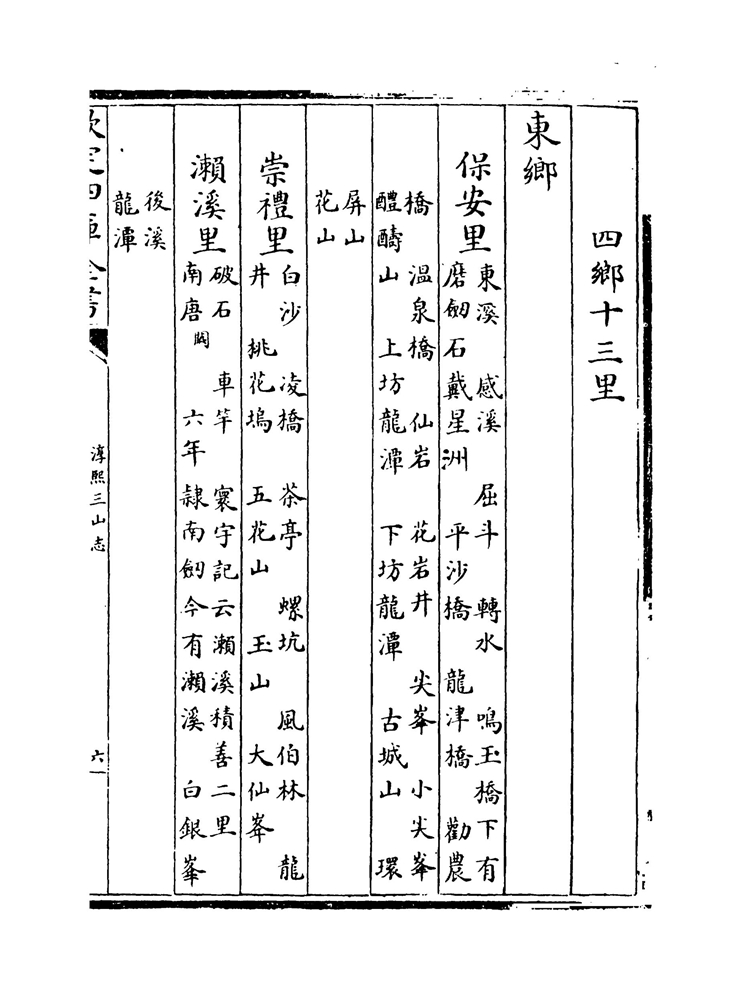 四鄉十三里
東鄉
保安里
東溪 感溪 屈斗 轉水 鳴玉橋下有
磨劒石戴星洲 平沙橋 龍津橋 勸農
橋 溫泉橋 仙岩 花岩井 尖峯 小尖峯
醴醻山 上坊龍潭 下坊龍潭 古城山 環
屏山
花山
崇禮里
白沙 凌橋 茶亭 螺坑 風伯林 龍
井 桃花塢 五花山 玉山 大仙峯
瀨溪里
破石 車竿 寰宇記云瀨溪積善二里
南唐闕 六年 隸南劒今有瀨溪 白銀峯
後溪
龍潭
欽定四庫全書
淳熙三山志
六